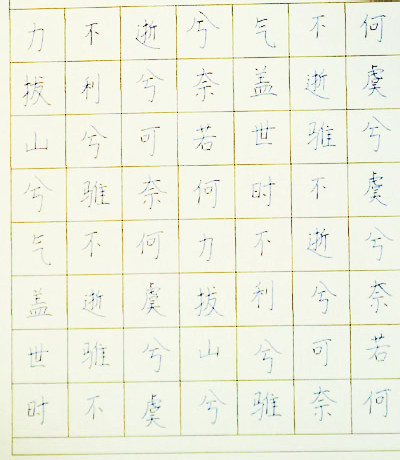 力拔山兮气盖世时
不利兮骓不逝骓不
逝兮可奈何虞兮虞
兮奈若何力拔山兮
气盖世时不利兮骓
不逝骓不逝兮可奈
何虞兮虞兮奈若何